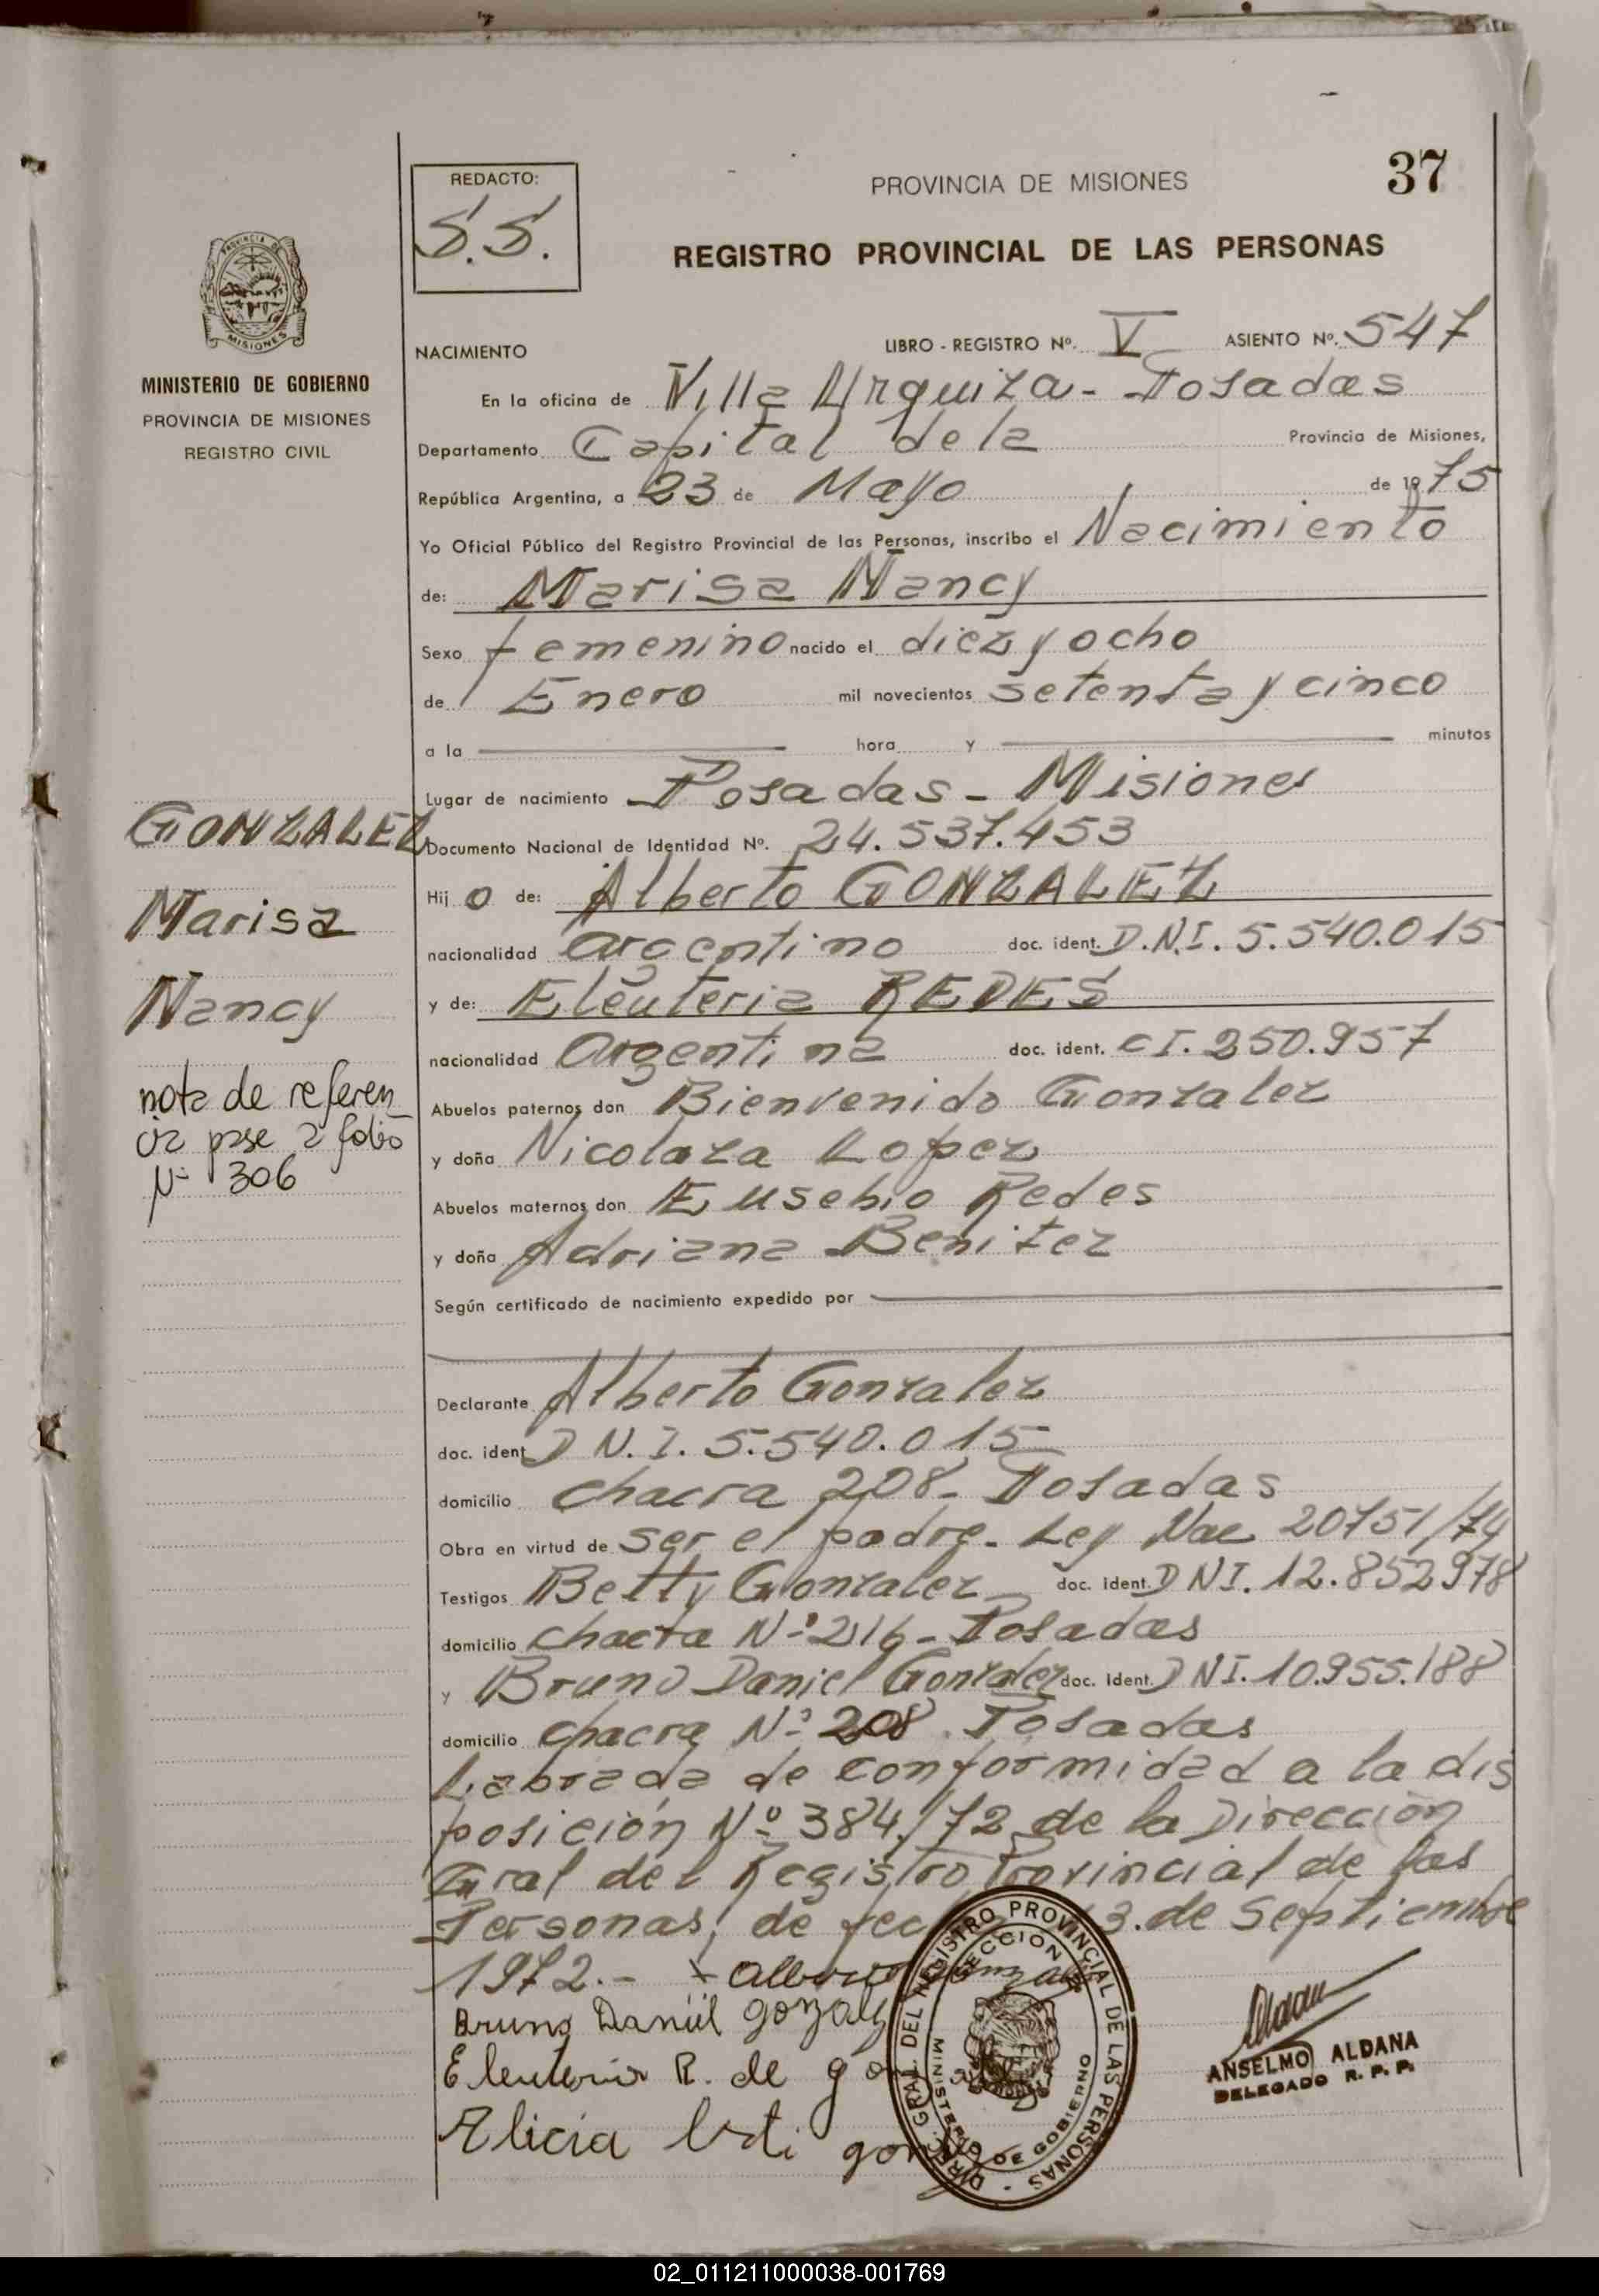 37
REDACTO:
S.S.
PROVINCIA DE MISIONES
REGISTRO PROVINCIAL DE LAS PERSONAS
PROVINCIA DE
MISIONES
MINISTERIO DE GOBIERNO
PROVINCIA DE MISIONES
REGISTRO CIVIL
NACIMIENTO LIBRO - REGISTRO Nº. V ASIENTO Nº. 547
En la oficina de Villa Urquiza - Posadas
Departamento Capital de la Provincia de Misiones,
República Argentina, a 23 de Mayo de 1975
Yo Oficial Público del Registro Provincial de las Personas, inscribo el Nacimiento
de: Marisa Nancy
Sexo femenino nacido el diez y ocho
de Enero mil novecientos setenta y cinco
a la hora y minutos
Lugar de nacimiento Posadas - Misiones
GONZALEZ
Marisa
Nancy
nota de referen
cia pase a folio
Nº 306
Documento Nacional de Identidad Nº. 24.537.453
Hij o de: Alberto GONZALEZ
nacionalidad argentino doc. ident. D.N.I. 5.540.015
y de: Eleuteria REDES
nacionalidad Argentina doc. ident. C I. 250.957
Abuelos paternos don Bienvenido Gonzalez
y doña Nicolaza Lopez
Abuelos maternos don Eusebio Redes
y doña Adriana Benitez
Según certificado de nacimiento expedido por
Declarante Alberto Gonzalez
doc. ident D N. I. 5.540.015
domicilio chacra 208 - Posadas
Obra en virtud de ser el padre - Ley Nac 20751/74
Testigos Betty Gonzalez doc. ident. D N I. 12.852978
domicilio chacra Nº 216 - Posadas
y Bruno Daniel Gonzalez doc. ident. D N I. 10.955.188
domicilio chacra Nº 208 Posadas
Labrada de conformidad a la dis
posición Nº 384/72 de la Dirección
Gral del Registro Provincial de las
Personas, de 3 de Septiembre
1972.-
Bruno Daniel
Eleuteria R. de
Alicia
DIREC. GRAL. DEL REGISTRO PROVINCIAL DE LAS PERSONAS
MINISTERIO DE GOBIERNO
ANSELMO ALDANA
DELEGADO R. P. P.
02_011211000038-001769